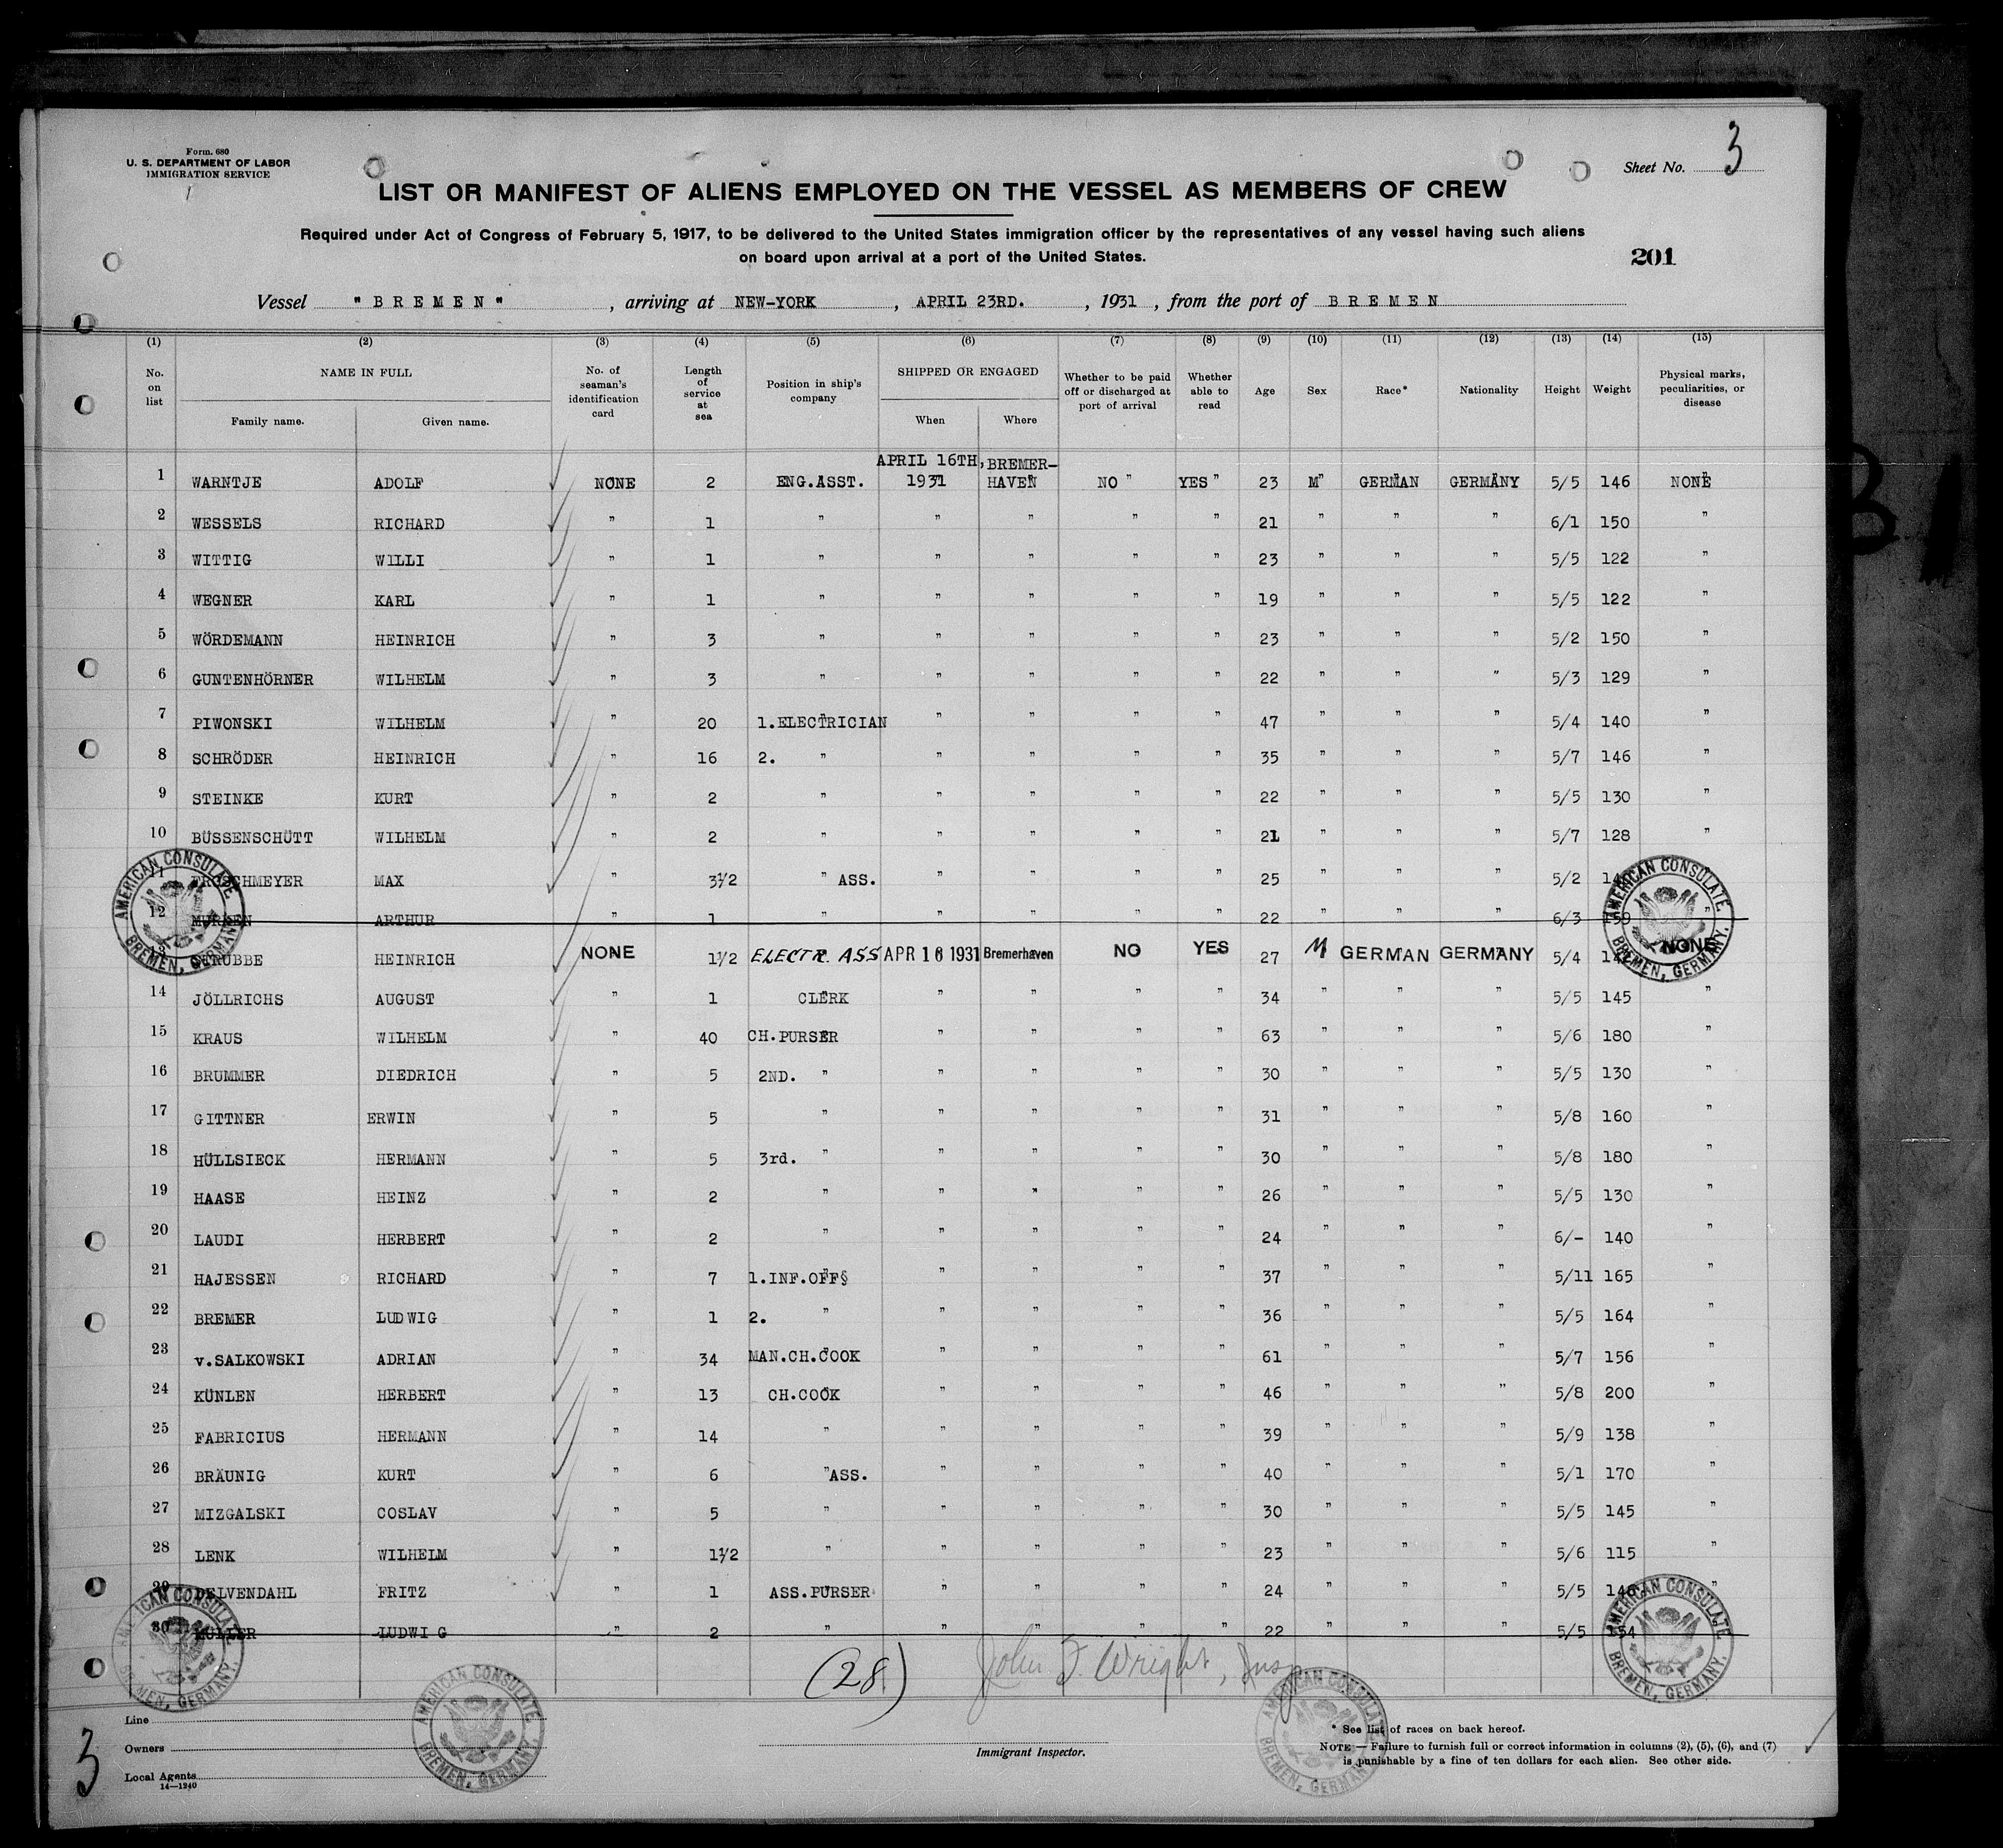 Form. 680
U. S. DEPARTMENT OF LABOR
IMMIGRATION SERVICE
Sheet No. 3
LIST OR MANIFEST OF ALIENS EMPLOYED ON THE VESSEL AS MEMBERS OF CREW
Required under Act of Congress of February 5, 1917, to be delivered to the United States immigration officer by the representatives of any vessel having such aliens
on board upon arrival at a port of the United States.
201
Vessel "BREMEN", arriving at NEW-YORK, APRIL 23RD., 1931, from the port of BREMEN
(1) (2) (3) (4) (5) (6) (7) (8) (9) (10) (11) (12) (13) (14) (15)
No. on list NAME IN FULL Family name. Given name. No. of seaman's identification card Length of service at sea Position in ship's company SHIPPED OR ENGAGED When Where Whether to be paid off or discharged at port of arrival Whether able to read Age Sex Race* Nationality Height Weight Physical marks, peculiarities, or disease
1 WARNTJE ADOLF NONE 2 ENG.ASST. APRIL 16TH, 1931 BREMER-HAVEN NO " YES " 23 M" GERMAN GERMANY 5/5 146 NONE
2 WESSELS RICHARD " 1 " " " " " 21 " " " 6/1 150 "
3 WITTIG WILLI " 1 " " " " " 23 " " " 5/5 122 "
4 WEGNER KARL " 1 " " " " " 19 " " " 5/5 122 "
5 WÖRDEMANN HEINRICH " 3 " " " " " 23 " " " 5/2 150 "
6 GUNTENHÖRNER WILHELM " 3 " " " " " 22 " " " 5/3 129 "
7 PIWONSKI WILHELM " 20 1.ELECTRICIAN " " " " 47 " " " 5/4 140 "
8 SCHRÖDER HEINRICH " 16 2. " " " " " 35 " " " 5/7 146 "
9 STEINKE KURT " 2 " " " " " 22 " " " 5/5 130 "
10 BÜSSENSCHÜTT WILHELM " 2 " " " " " 21 " " " 5/7 128 "
11 FROSCHMEYER MAX " 3½ " ASS. " " " " 25 " " " 5/2
12 ARTHUR " 1 " " " " " 22 " " " 6/3 159 "
13 STRUBBE HEINRICH NONE 1½ ELECTR. ASS APR 16 1931 Bremerhaven NO YES 27 M GERMAN GERMANY 5/4 NONE
14 JÖLLRICHS AUGUST " 1 CLERK " " " " 34 " " " 5/5 145 "
15 KRAUS WILHELM " 40 CH.PURSER " " " " 63 " " " 5/6 180 "
16 BRUMMER DIEDRICH " 5 2ND. " " " " " 30 " " " 5/5 130 "
17 GITTNER ERWIN " 5 " " " " " 31 " " " 5/8 160 "
18 HÜLLSIECK HERMANN " 5 3rd. " " " " " 30 " " " 5/8 180 "
19 HAASE HEINZ " 2 " " " " " 26 " " " 5/5 130 "
20 LAUDI HERBERT " 2 " " " " " 24 " " " 6/- 140 "
21 HAJESSEN RICHARD " 7 1.INF.OFF§ " " " " 37 " " " 5/11 165 "
22 BREMER LUDWIG " 1 2. " " " " " 36 " " " 5/5 164 "
23 v.SALKOWSKI ADRIAN " 34 MAN.CH.COOK " " " " 61 " " " 5/7 156 "
24 KÜNLEN HERBERT " 13 CH.COOK " " " " 46 " " " 5/8 200 "
25 FABRICIUS HERMANN " 14 " " " " " 39 " " " 5/9 138 "
26 BRÄUNIG KURT " 6 "ASS. " " " " 40 " " " 5/1 170 "
27 MIZGALSKI COSLAV " 5 " " " " " 30 " " " 5/5 145 "
28 LENK WILHELM " 1½ " " " " " 23 " " " 5/6 115 "
29 DELVENDAHL FRITZ " 1 ASS.PURSER " " " " 24 " " " 5/5 "
30 MÜLLER LUDWIG " 2 " " " " " 22 " " " 5/5 154
AMERICAN CONSULATE BREMEN, GERMANY.
AMERICAN CONSULATE BREMEN, GERMANY.
AMERICAN CONSULATE BREMEN, GERMANY.
AMERICAN CONSULATE BREMEN, GERMANY.
(28) John F. Wright, Insp
AMERICAN CONSULATE BREMEN, GERMANY.
AMERICAN CONSULATE BREMEN, GERMANY.
Line
Owners
Local Agents
14—1240
3
Immigrant Inspector.
* See list of races on back hereof.
NOTE — Failure to furnish full or correct information in columns (2), (5), (6), and (7)
is punishable by a fine of ten dollars for each alien. See other side.